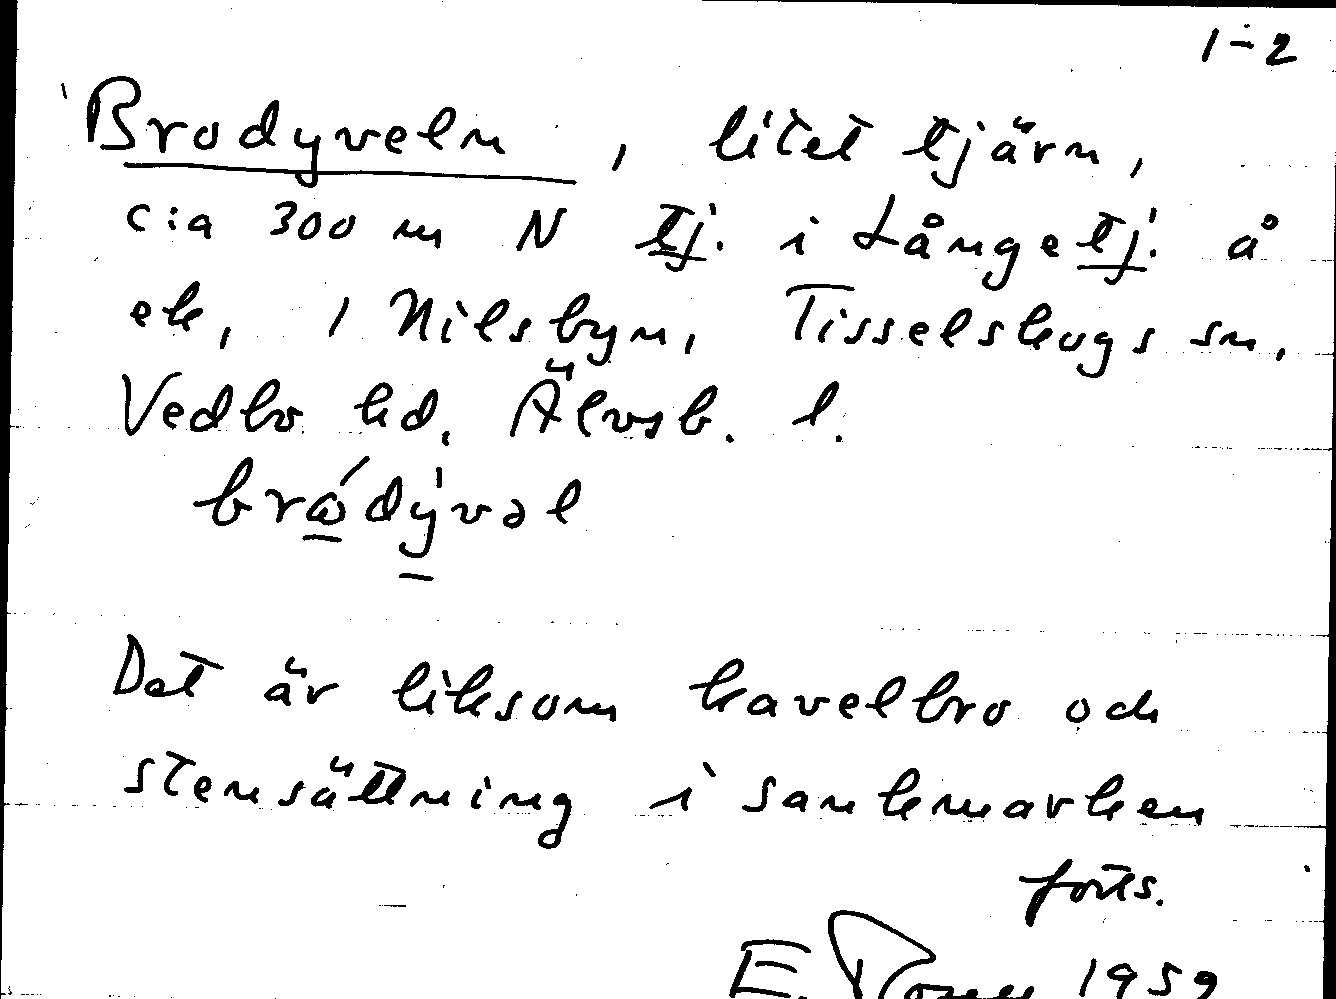 1-2
Brodyveln, litet tjärn,
c:a 300 m N tj. i Långetj. å
ek, 1 Nilsbyn, Tisselskogs sn,
Vedbo hd. Älvsb. l.
Det är liksom kavelbro och
stensättning i sankmarken
forts.
E. 1959